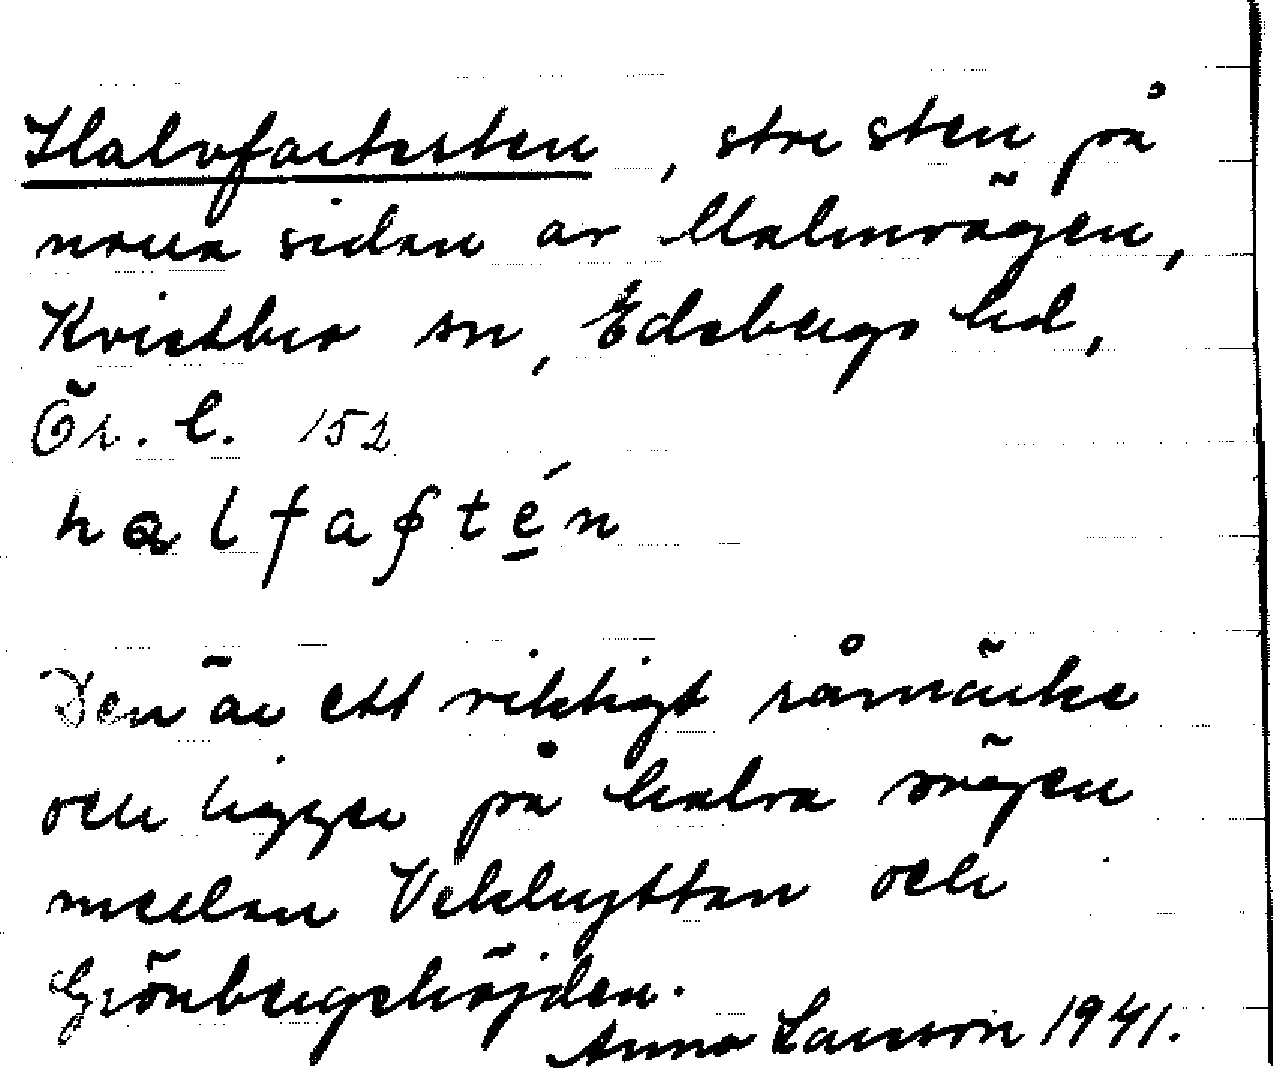 Halvfartsten, stor sten på
norra sidan av Malmvägen,
Kvistbro sn, Edsbergs hd,
Ör. l. 152
halfaʂtén
Den är ett riktigt råmärke
och ligger på halva vägen
mellan Vekhyttan och
Grönbergshöjden.
Anna Larsson 1941.